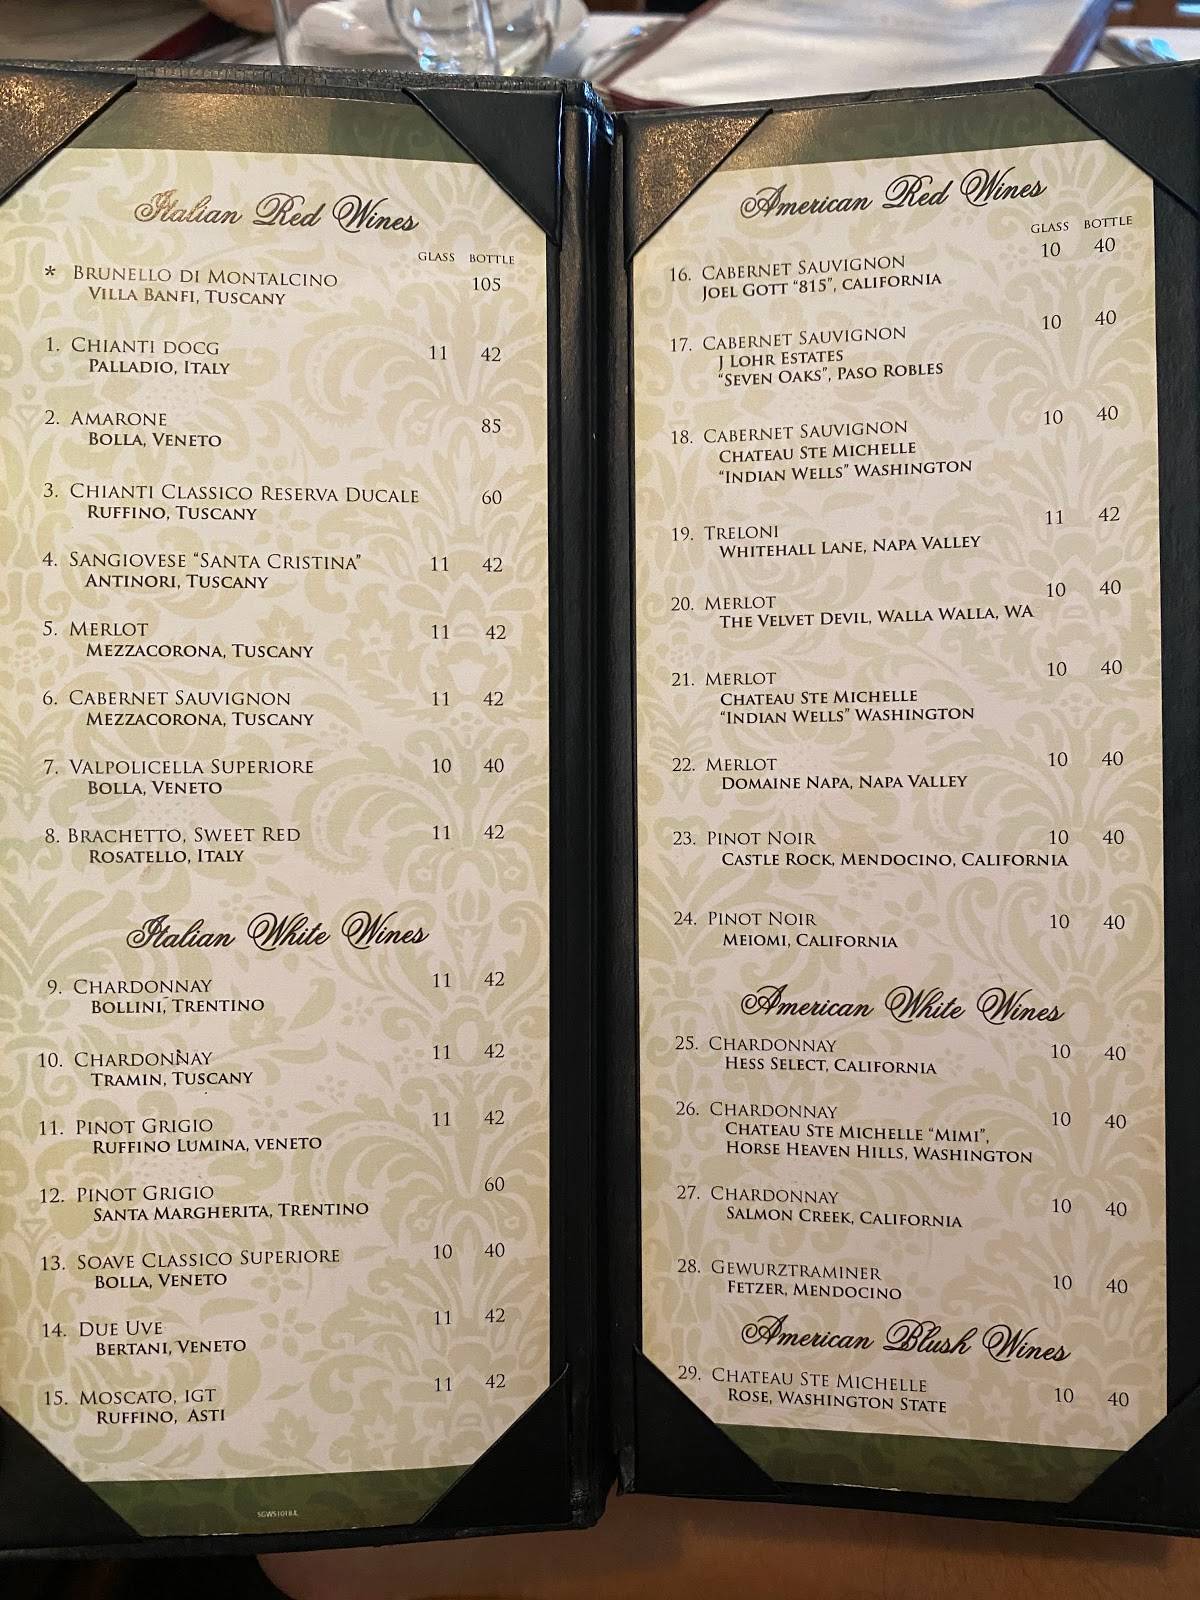 Italian Red Wines
GLASS BOTTLE
* BRUNELLO DI MONTALCINO 105
VILLA BANFI, TUSCANY
1. CHIANTI DOCG 11 42
PALLADIO, ITALY
2. AMARONE 85
BOLLA, VENETO
3. CHIANTI CLASSICO RESERVA DUCALE 60
RUFFINO, TUSCANY
4. SANGIOVESE "SANTA CRISTINA" 11 42
ANTINORI, TUSCANY
5. MERLOT 11 42
MEZZACORONA, TUSCANY
6. CABERNET SAUVIGNON 11 42
MEZZACORONA, TUSCANY
7. VALPOLICELLA SUPERIORE 10 40
BOLLA, VENETO
8. BRACHETTO, SWEET RED 11 42
ROSATELLO, ITALY
Italian White Wines
9. CHARDONNAY 11 42
BOLLINI, TRENTINO
10. CHARDONNAY 11 42
TRAMIN, TUSCANY
11. PINOT GRIGIO 11 42
RUFFINO LUMINA, VENETO
12. PINOT GRIGIO 60
SANTA MARGHERITA, TRENTINO
13. SOAVE CLASSICO SUPERIORE 10 40
BOLLA, VENETO
14. DUE UVE 11 42
BERTANI, VENETO
15. MOSCATO, IGT 11 42
RUFFINO, ASTI
SGWS1018.L
American Red Wines
GLASS BOTTLE
16. CABERNET SAUVIGNON 10 40
JOEL GOTT "815", CALIFORNIA
17. CABERNET SAUVIGNON 10 40
J LOHR ESTATES
"SEVEN OAKS", PASO ROBLES
18. CABERNET SAUVIGNON 10 40
CHATEAU STE MICHELLE
"INDIAN WELLS" WASHINGTON
19. TRELONI 11 42
WHITEHALL LANE, NAPA VALLEY
20. MERLOT 10 40
THE VELVET DEVIL, WALLA WALLA, WA
21. MERLOT 10 40
CHATEAU STE MICHELLE
"INDIAN WELLS" WASHINGTON
22. MERLOT 10 40
DOMAINE NAPA, NAPA VALLEY
23. PINOT NOIR 10 40
CASTLE ROCK, MENDOCINO, CALIFORNIA
24. PINOT NOIR 10 40
MEIOMI, CALIFORNIA
American White Wines
25. CHARDONNAY 10 40
HESS SELECT, CALIFORNIA
26. CHARDONNAY 10 40
CHATEAU STE MICHELLE "MIMI",
HORSE HEAVEN HILLS, WASHINGTON
27. CHARDONNAY 10 40
SALMON CREEK, CALIFORNIA
28. GEWURZTRAMINER 10 40
FETZER, MENDOCINO
American Blush Wines
29. CHATEAU STE MICHELLE 10 40
ROSE, WASHINGTON STATE